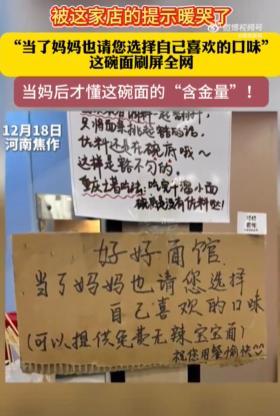 被这家店的提示暖哭了
微博视频号
“当了妈妈也请您选择自己喜欢的口味”
这碗面刷屏全网
当妈后才懂这碗面的“含金量”！
12月18日
河南焦作
又将面条挑起
饮料还是在碗底哦～
这样是不匀的
好好面馆
当了妈妈也请您选择
自己喜欢的口味
(可以提供免费无辣宝宝面)
祝您用餐愉快